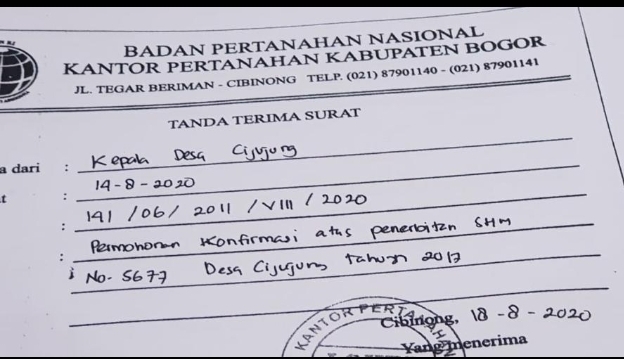 BADAN PERTANAHAN NASIONAL
KANTOR PERTANAHAN KABUPATEN BOGOR
JL. TEGAR BERIMAN - CIBINONG TELP. (021) 87901140 - (021) 87901141
TANDA TERIMA SURAT
a dari : Kepala Desa Cijujung
t : 14-8-2020
: 141 / 06 / 2011 / VIII / 2020
: Permohonan Konfirmasi atas penerbitan SHM
No. 5677 Desa Cijujung tahun 2017
KANTOR PERTANAHAN
Cibinong, 18-8-2020
Yang menerima